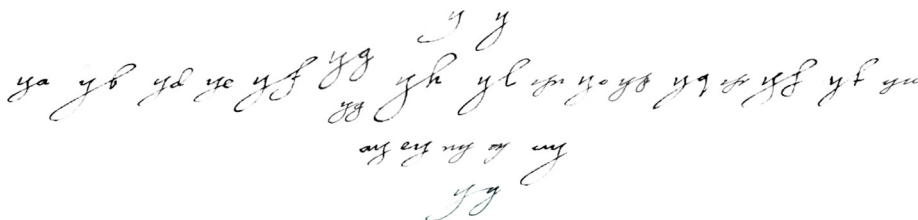 y y
yg
ya yb yd ye yf yh yl yn yo yp yq yr yſ yt yu
yg
ay ey ny oy uy
yg